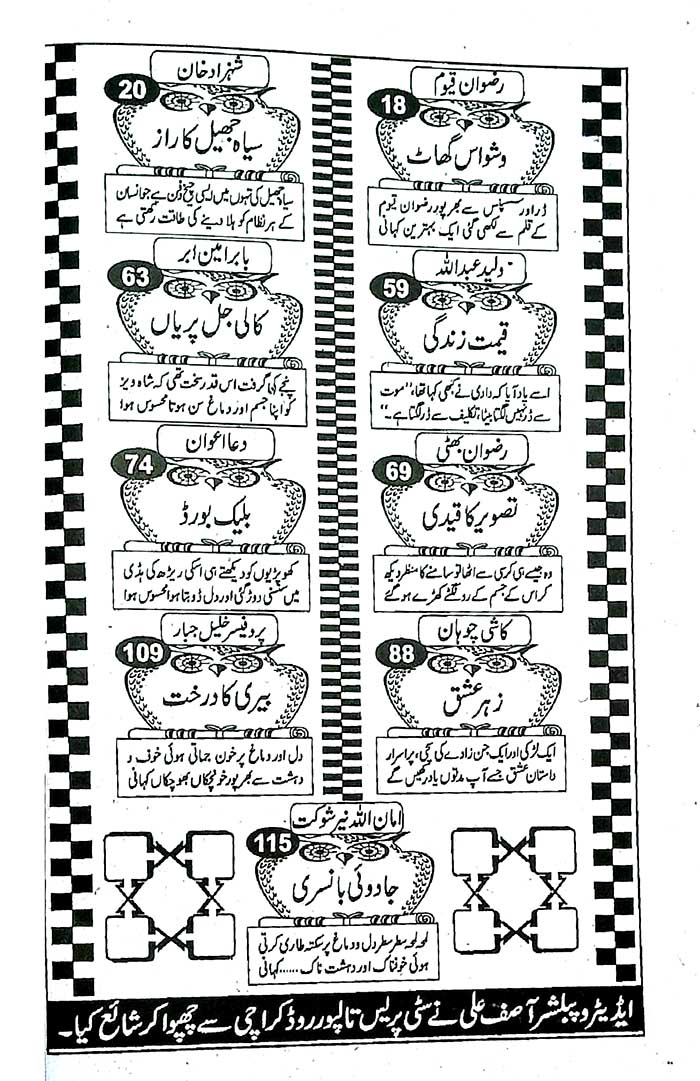 رضوان قیوم
18
وشواس گھاٹ
ڈر اور سسپنس سے بھرپور رضوان قیوم
کے قلم سے لکھی گئی ایک بہترین کہانی
شہزاد خان
20
سیاہ جھیل کا راز
سیاہ جھیل کی تہوں میں ایسی چیخ دفن ہے جو انسان
کے ہر نظام کو ہلا دینے کی طاقت رکھتی ہے
ولید عبداللہ
59
قیمت زندگی
اسے یاد آیا کہ دادی نے کبھی کہا تھا، ”موت
سے ڈر نہیں لگتا بیٹا، تکلیف سے ڈر لگتا ہے۔“
بابر امین ابر
63
کالی جل پریاں
پنجے کی گرفت اس قدر سخت تھی کہ شاہ ویز
کو اپنا جسم اور دماغ سن ہوتا محسوس ہوا
رضوان بھٹی
69
تصویر کا قیدی
وہ جیسے ہی کرسی سے اٹھا تو سامنے کا منظر دیکھ
کر اس کے جسم کے رونگٹے کھڑے ہو گئے
دعا اعوان
74
بلیک بورڈ
کھوپڑیوں کو دیکھتے ہی اسکی ریڑھ کی ہڈی
میں سنسنی دوڑ گئی اور دل ڈوبتا ہوا محسوس ہوا
کاشی چوہان
88
زہر عشق
ایک لڑکی اور ایک جن زادے کی سچی، پراسرار
داستان عشق جسے آپ مدتوں یاد رکھیں گے
پروفیسر خلیل جبار
109
بیری کا درخت
دل اور دماغ پر خون جماتی ہوئی خوف و
دہشت سے بھرپور خونچکاں بھونچکاں کہانی
امان اللہ نیر شوکت
115
جادوئی بانسری
لمحہ لمحہ سطر سطر دل و دماغ پر سکتہ طاری کرتی
ہوئی خوفناک اور دہشت ناک ...... کہانی
ایڈیٹر و پبلشر آصف علی نے سٹی پریس تالپور روڈ کراچی سے چھپوا کر شائع کیا۔